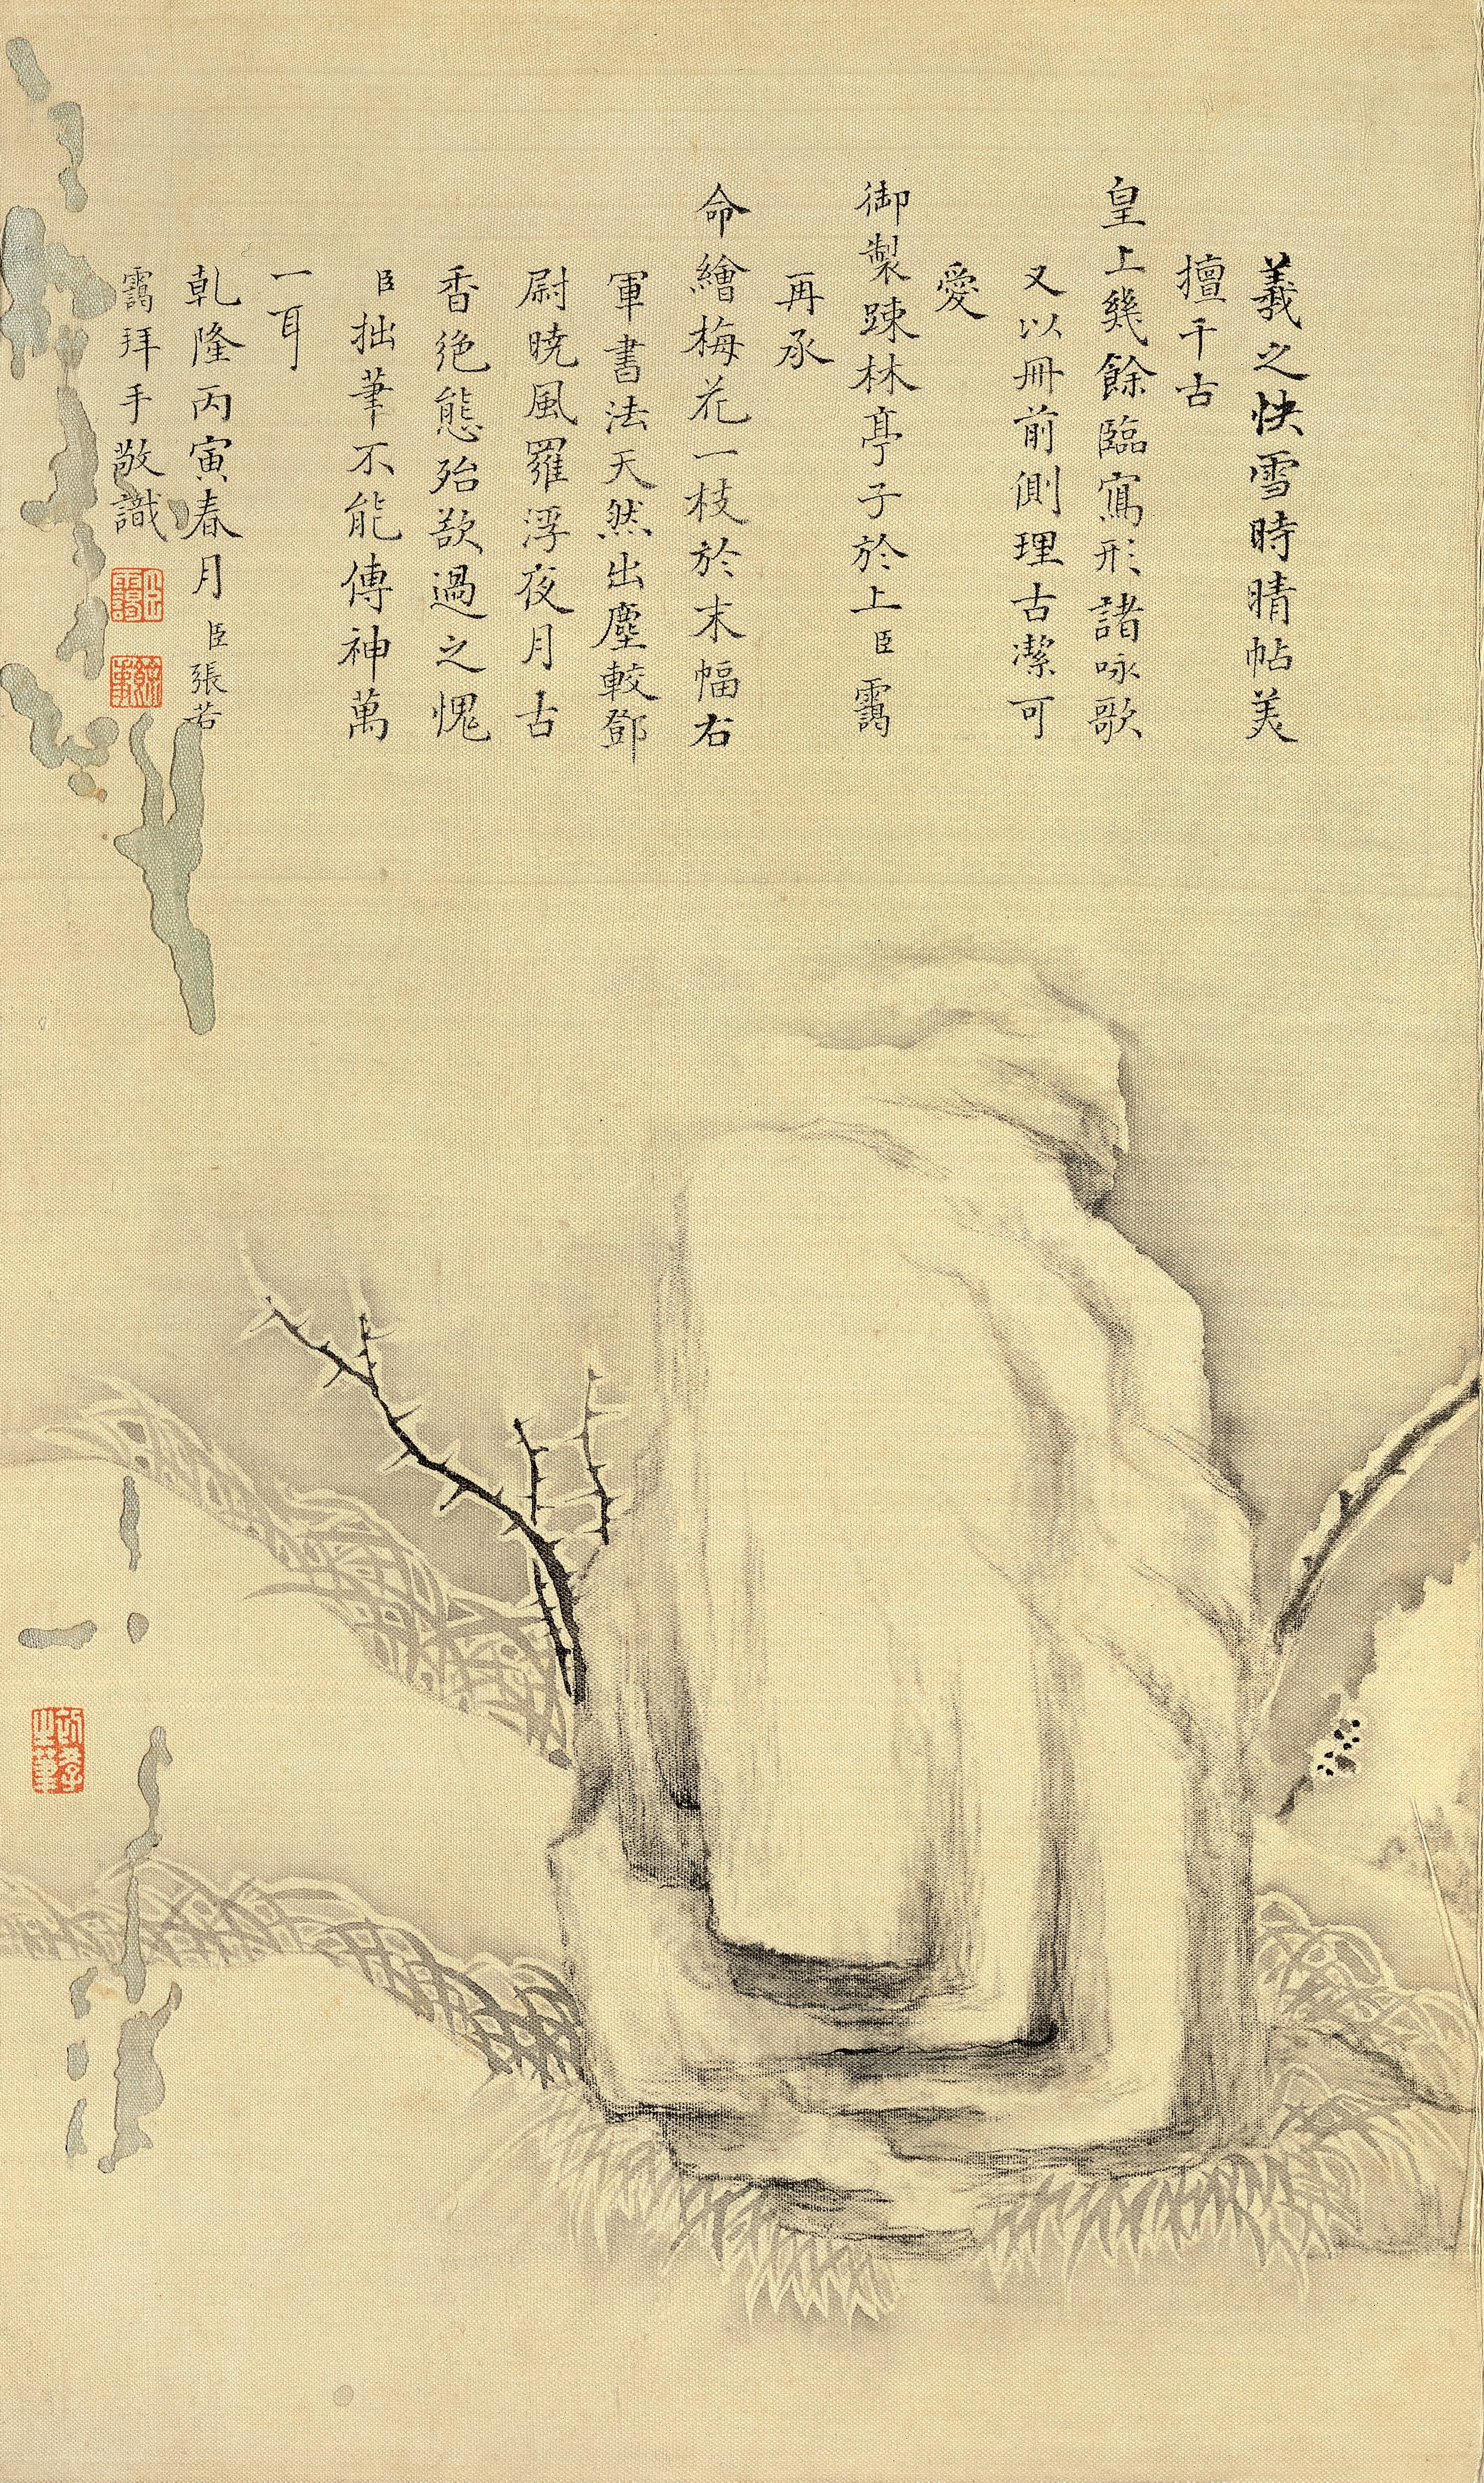 羲之快雪時晴帖美
擅千古
皇上幾餘臨寫形諸咏歌
又以冊前側理古潔可
愛
御製踈林亭子於上臣靄
再承
命繪梅花一枝於末幅右
軍書法天然出塵較鄧
尉曉風羅浮夜月古
香绝態殆欲過之愧
臣拙筆不能傳神萬
一耳
乾隆丙寅春月臣張若
靄拜手敬識
臣靄